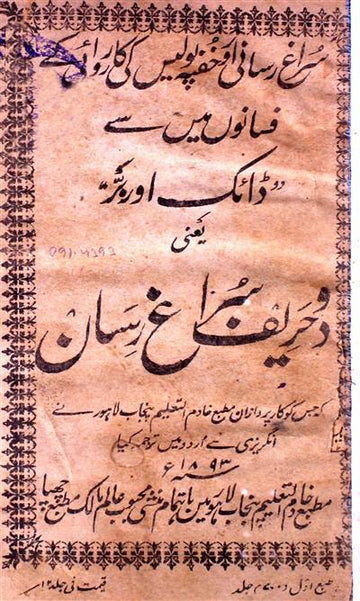 سراغ رسانی اور خفیہ پولیس کی کاروائی کے
فسانوں میں سے
"ڈائک اور برّ"
یعنی
دو حریف سراغ رسان
کہ جس کو کارپردازان مطبع خادم التعلیم پنجاب لاہور نے
انگریزی سے اردو میں ترجمہ کیا
۱۸۹۳ء
مطبع خادم التعلیم پنجاب لاہور میں باہتمام منشی محبوب عالم مالک مطبع چھپا
طبع اول ۷۰۰ جلد
قیمت فی جلد ۱۲/